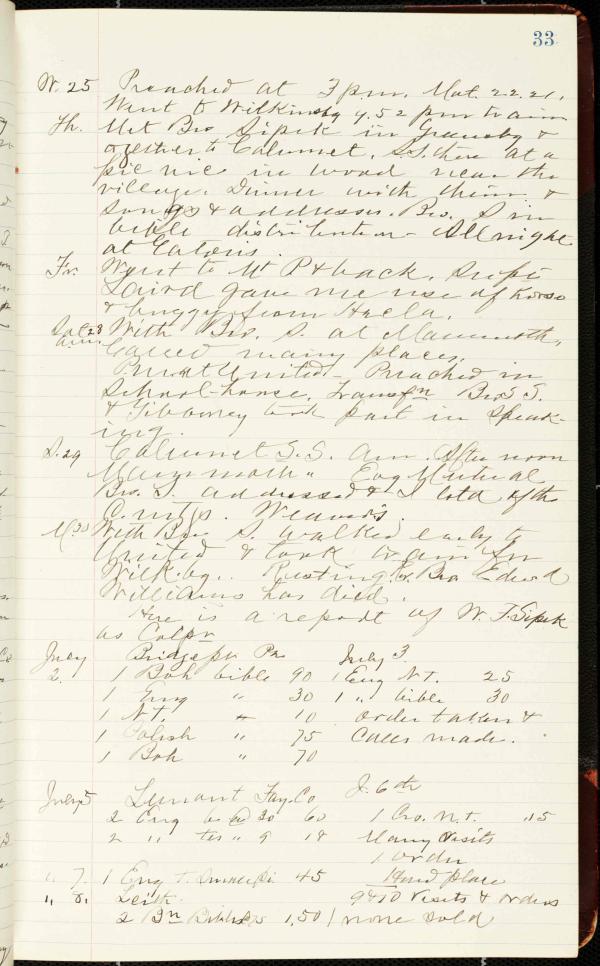 33
W. 25 Preached at 7 p.m. Mat. 22.21.
Went to Wilkinsbg 9.52 pm train
Th. Met Bro Sipek in Greensbg &
together to Calumet. S.S. there at a
pic nic in wood near the
village. Dinner with them &
songs & addresses. Bro. S in
bible distribution - All night
at
Fr. Went to Mt P & back. Supt
Laird gave me use of horse
& buggy from Hecla.
Sat 28 With Bro. S. at Mammoth,
a.m. Called many places.
P.m. at United - Preached in
School-house. Bro S.
& Gibboney took part in speak-
ing.
S. 29 Calumet S.S. a.m. After noon
Mammoth " Eng
Bro. S. addressed & I told of the
M 30 With Bro. S. walked early to
United & took train for
Wilk.bg. Resting. Bro Edwd
Williams has died.
Here is a report of W. F. Sipek
as Colpr
July Bridgept Pa July 3
2. 1 Boh bible 90 1 Eng N.T. 25
1 Eng " 30 1 " bible 30
1 N.T. 10 order taken &
1 Polish " 75 calls made.
1 Boh " 70
July 5 Lemont Fay. Co J. 6th
2 Eng b @ 30 60 1 Cro. N.T. .15
2 " tes " 9 18 Many visits
1 order
" 7. 1 Eng T. 45 place
" 8. Leith 9 & 10 Visits & orders
2 Bibles 75 1,50 / none sold